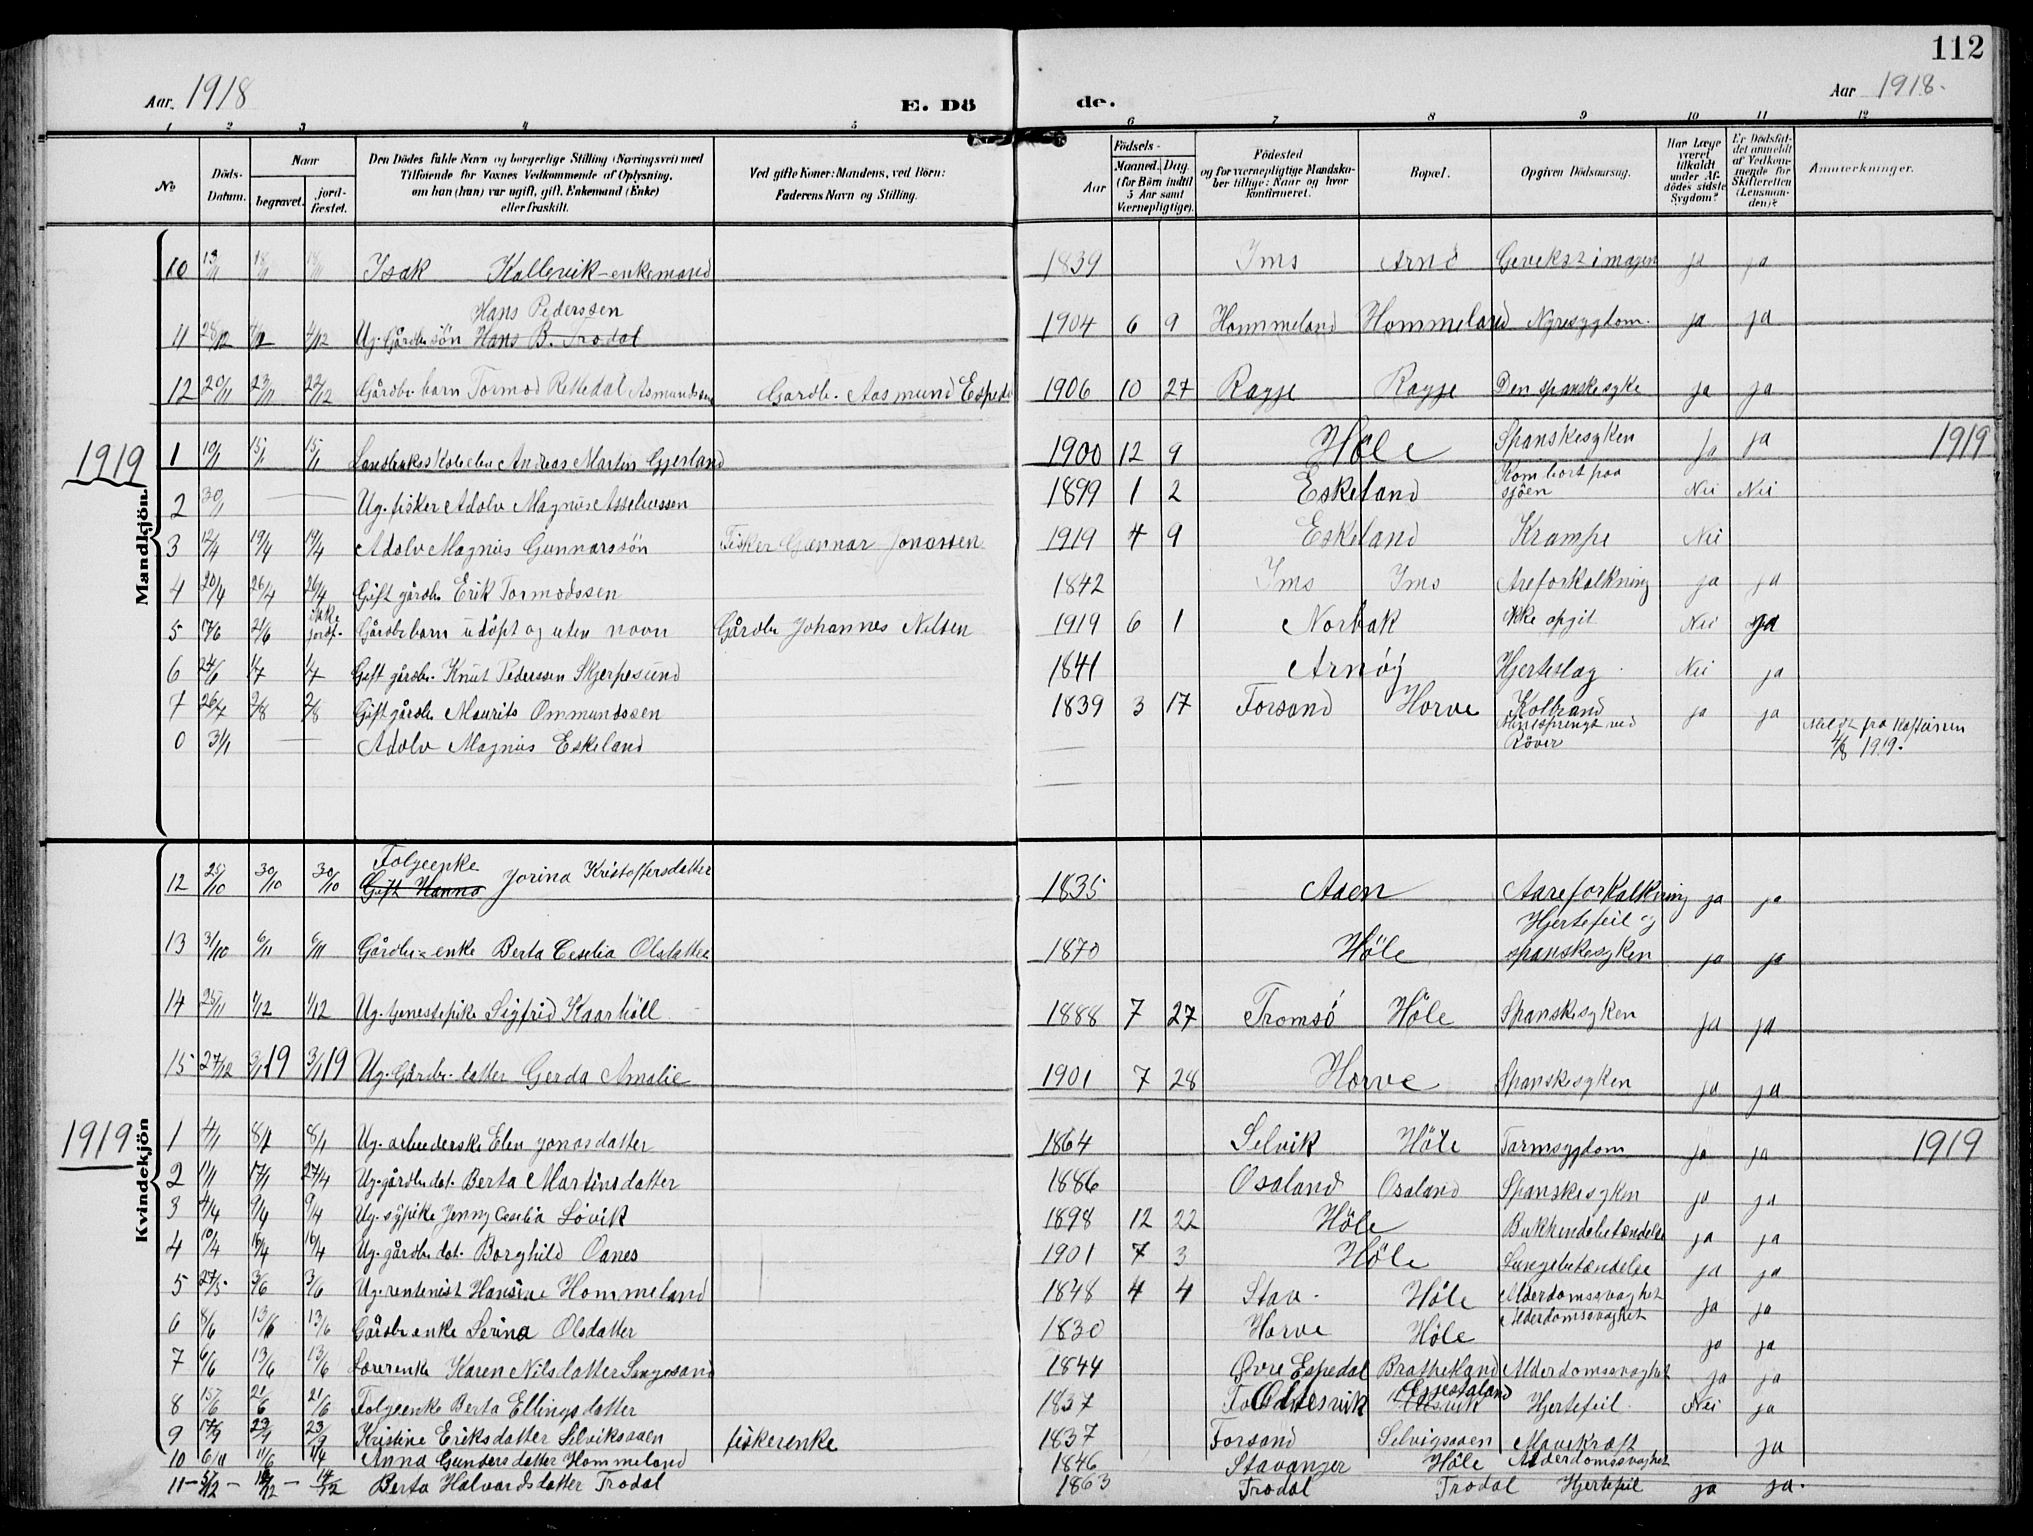 112
Aar. 1918
E. Dö
de.
Aar 1918.
1 2 3 4 5 6 7 8 9 10 11 12
No
Döds-Datum.
Naar
begravet.
jord-fæstet.
Den Dödes fulde Navn og borgerlige Stilling (Næringsvei) med
Tilføiende for Voxnes Vedkommende af Oplysning,
om han (hun) var ugift, gift, Enkemand (Enke)
eller fraskilt.
Ved gifte Koner: Mandens, ved Börn:
Faderens Navn og Stilling.
Födsels-
Aar
Maaned. Dag.
(for Börn indtil
5 Aar samt
Værnepligtige).
Födested
og for værnepligtige Mandska-
ber tillige: Naar og hvor
konfirmeret.
Bopæl.
Opgiven Dödsaarsag.
Har Læge
været
tilkaldt
under Af-
dödes sidste
Sygdom?
Er Dödsfal-
det anmeldt
af Vedkom-
mende for
Skifteretten
(Lensman-
den)?
Anmerkninger.
Mandkjön.
10 13/11 18/11 18/11 Isak Kallevik - enkemand 1839 Ims Arnö ja ja
Hans Pederssen
11 28/12 4/12 4/12 Ug. Gårdbr. sön Hans B. Trodal 1904 6 9 Hommeland Hommeland Nyresygdom. ja ja
12 20/11 23/11 22/12 Gårdbr. barn Tormod Rettedal Asmundssen Gardbr. Aasmund Espedal 1906 10 27 Ragje Ragje Den spanskesyke ja ja
1919
1 10/1 15/1 15/1 Landbruksskoleelev Andreas Martin Gjerland 1900 12 9 Höle Spanskesyken ja ja 1919
2 30/1 Ug. fisker Adolv Magnus Asseliussen 1899 1 2 Eskeland Kom bort paa sjöen Nei Nei
3 12/4 19/4 19/4 Adolv Magnus Gunnarssön Fisker Gunnar Jonassen 1919 4 9 Eskeland Krampe Nei
4 20/4 26/4 26/4 Gift gårdbr. Erik Tormodssen 1842 Ims Ims Areforkalkning ja ja
5 17/6 21/6 ikke jordf. Gårdbr barn udöpt og uten navn Gårdbr Johannes Nilsen 1919 6 1 Norbak Ikke opgit Nei ja
6 24/6 1/7 1/7 Gift gårdbr. Knut Pederssen Skjerpesund 1841 Arnöy Hjerteslag Nei ja
7 26/7 2/8 2/8 Gift gårdbr Maurits Ommundssen 1839 3 17 Forsand Horve Kolbrand ja ja
0 3/1 Adolv Magnus Eskeland ved Röver Meldt fra 4/8 1919.
Kvindekjön
Folgeenke
12 25/10 30/10 30/10 Gift Hanna Jorina Kristoffersdatter 1835 Aaen Aareforkalkning ja ja
13 31/10 6/11 6/11 Gårdbr - enke Berta Cecelia Olsdatter 1870 Höle Hjertefeil og spanskesyken ja ja
14 25/11 1/12 1/12 Ug. tjenestepike Sigfrid Kaarhöll 1888 7 27 Tromsö Höle Spanskesyken ja ja
15 27/12 3/1 19 3/1 19 Ug. Gårdbr. datter Gerda Amalie 1901 7 28 Horve Spanskesyken ja ja
1919
1 4/1 8/1 8/1 Ug. arbeiderske Elen Jonasdatter 1864 Selvik Höle Tarmsygdom ja ja 1919
2 11/1 17/1 27/4 Ug. gårdbr dat. Berta Martinsdatter 1886 Osaland Osaland Spanskesyken ja ja
3 4/4 9/4 9/4 Ug. sypike Jenny Cecelia Lövik 1898 12 22 Höle Bukhindebetændelse ja ja
4 10/4 16/4 16/4 Ug. gårdbr dat. Borghild Oanes 1901 7 3 Höle Lungebetændelse ja ja
5 27/5 3/6 3/6 Ug. rentenist Hansine Hommeland 1848 4 4 Stav. Höle Alderdomssvaghet ja ja
6 8/6 13/6 13/6 Gårdbr enke Serina Olsdatter 1830 Horve Höle Alderdomssvaghet ja ja
7 6/6 13/6 13/6 Lærerenke Karen Nilsdatter 1844 Øvre Espedal Alderdomssvaghet ja ja
8 15/6 21/6 21/6 Folgeenke Berta Ellingsdatter 1837 Hjertefeil. Nei ja
9 17/9 23/9 23/9 Kristine Eriksdatter Selviksaaen fiskerenke 1837 Forsand Selvigsaaen Mavekraft ja
10 Anna Gundersdatter Hommeland 1846 Stavanger Höle Alderdomssvaghet
11 - 5/12 - 12/12 - 14/12 Berta Halvardsdatter Trodal 1863 Trodal Trodal Hjertefeil ja ja.